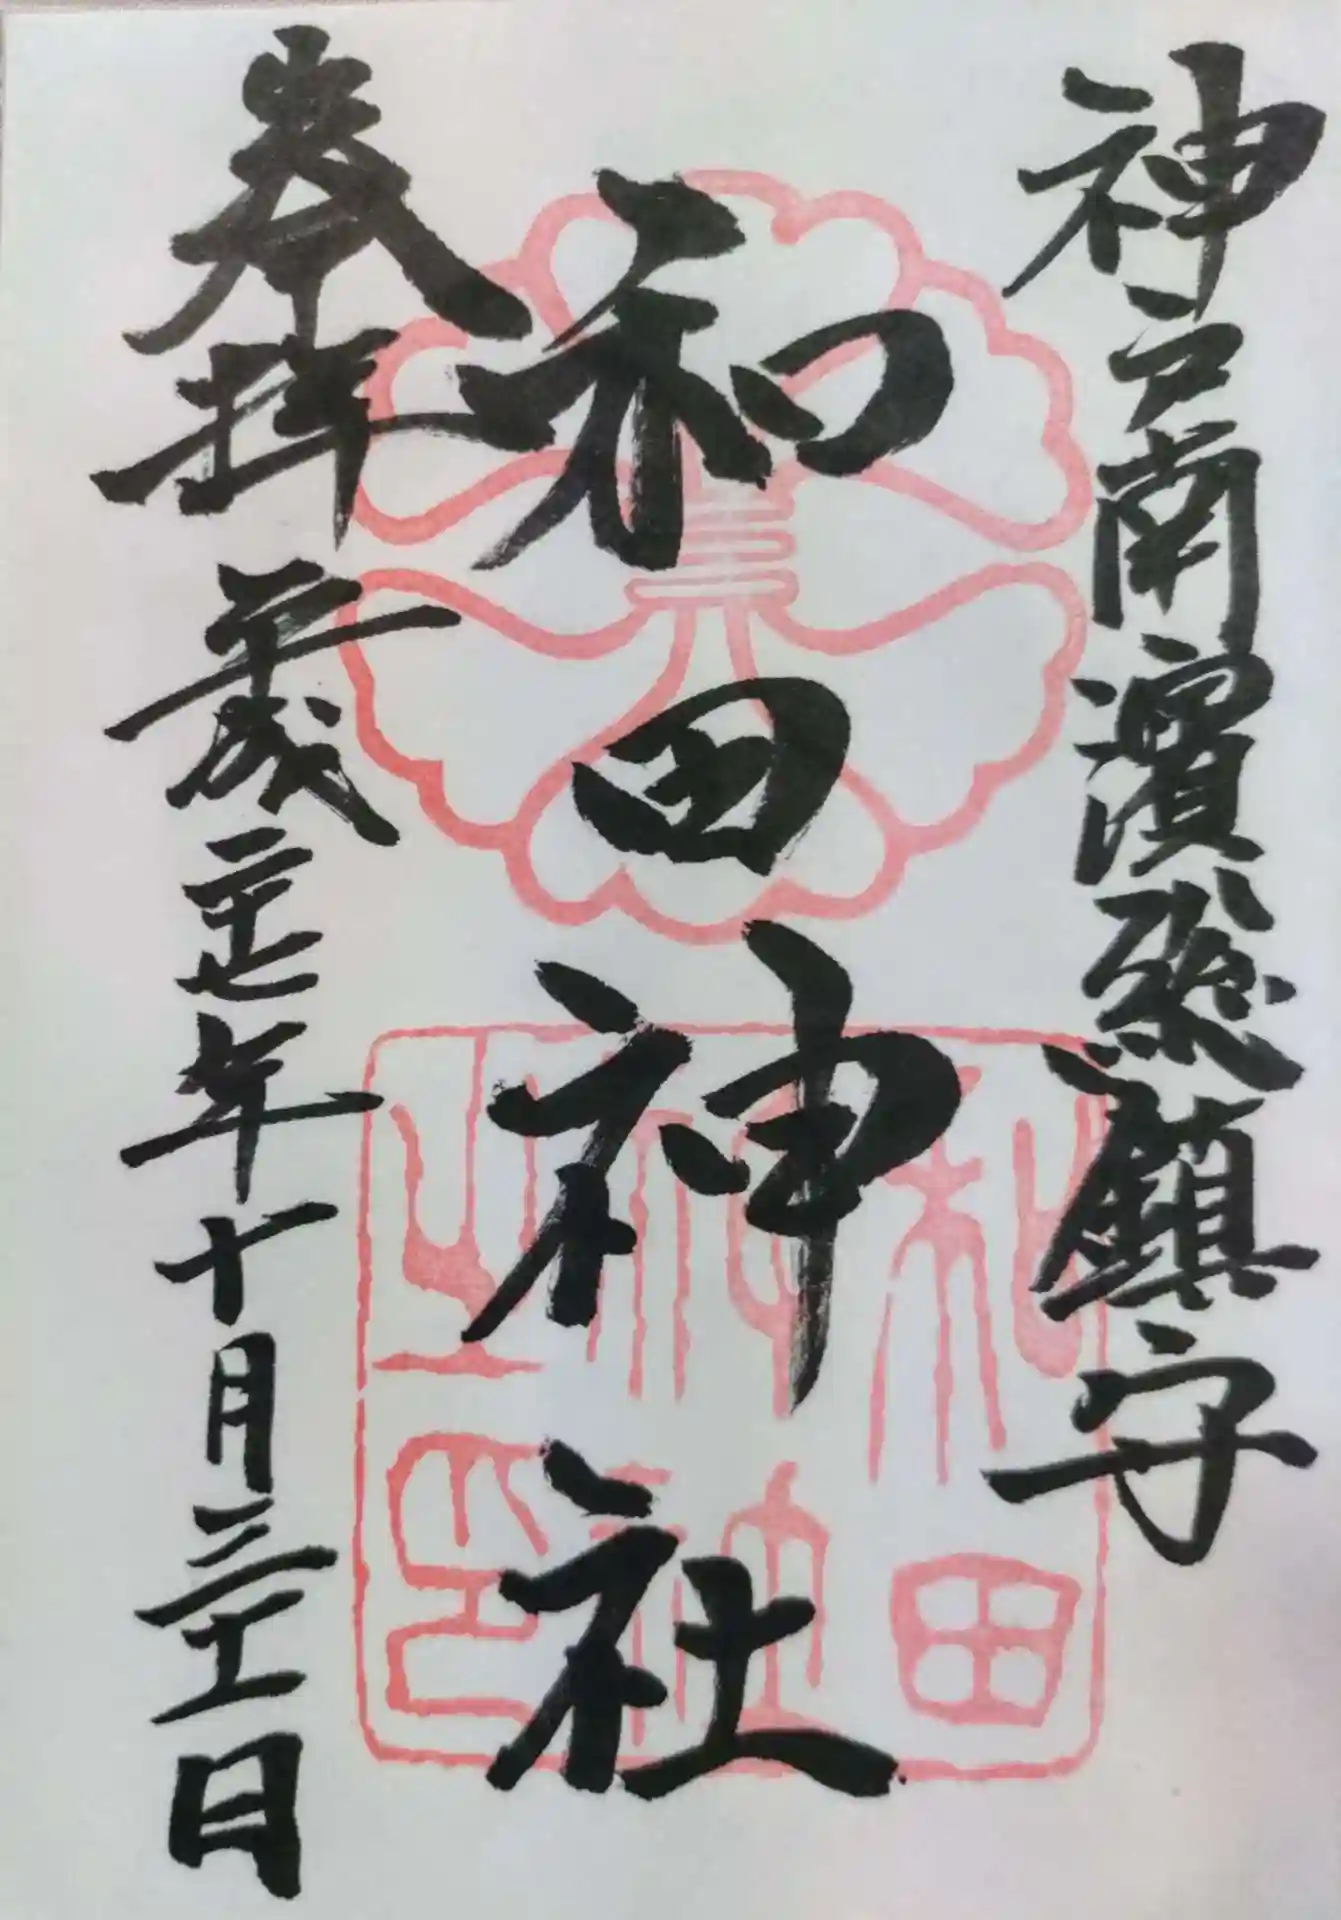 神戸南濱總鎮守
和田神社
奉拝 平成二十七年十月三十一日
和田神社之印